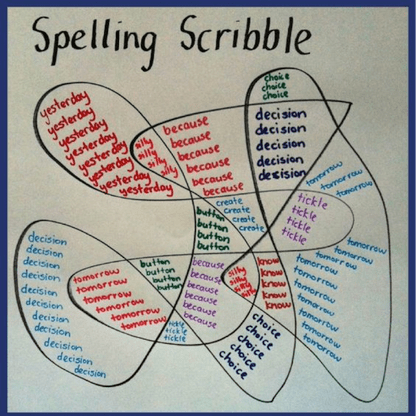 Spelling Scribble
choice
choice
choice
yesterday
yesterday
yesterday
yesterday
yesterday
yesterday
yesterday
yesterday
silly
silly
silly
silly
because
because
because
because
because
because
decision
decision
decision
decision
decision
tomorrow
tomorrow
tomorrow
create
create
create
create
tickle
tickle
tickle
tickle
button
button
button
button
decision
decision
decision
decision
decision
decision
decision
decision
decision
decision
tomorrow
tomorrow
tomorrow
tomorrow
tomorrow
button
button
button
button
tickle
tickle
tickle
because
because
because
because
because
because
silly
silly
silly
silly
know
know
know
know
know
tomorrow
tomorrow
tomorrow
tomorrow
tomorrow
tomorrow
tomorrow
tomorrow
tomorrow
tomorrow
choice
choice
choice
choice
choice